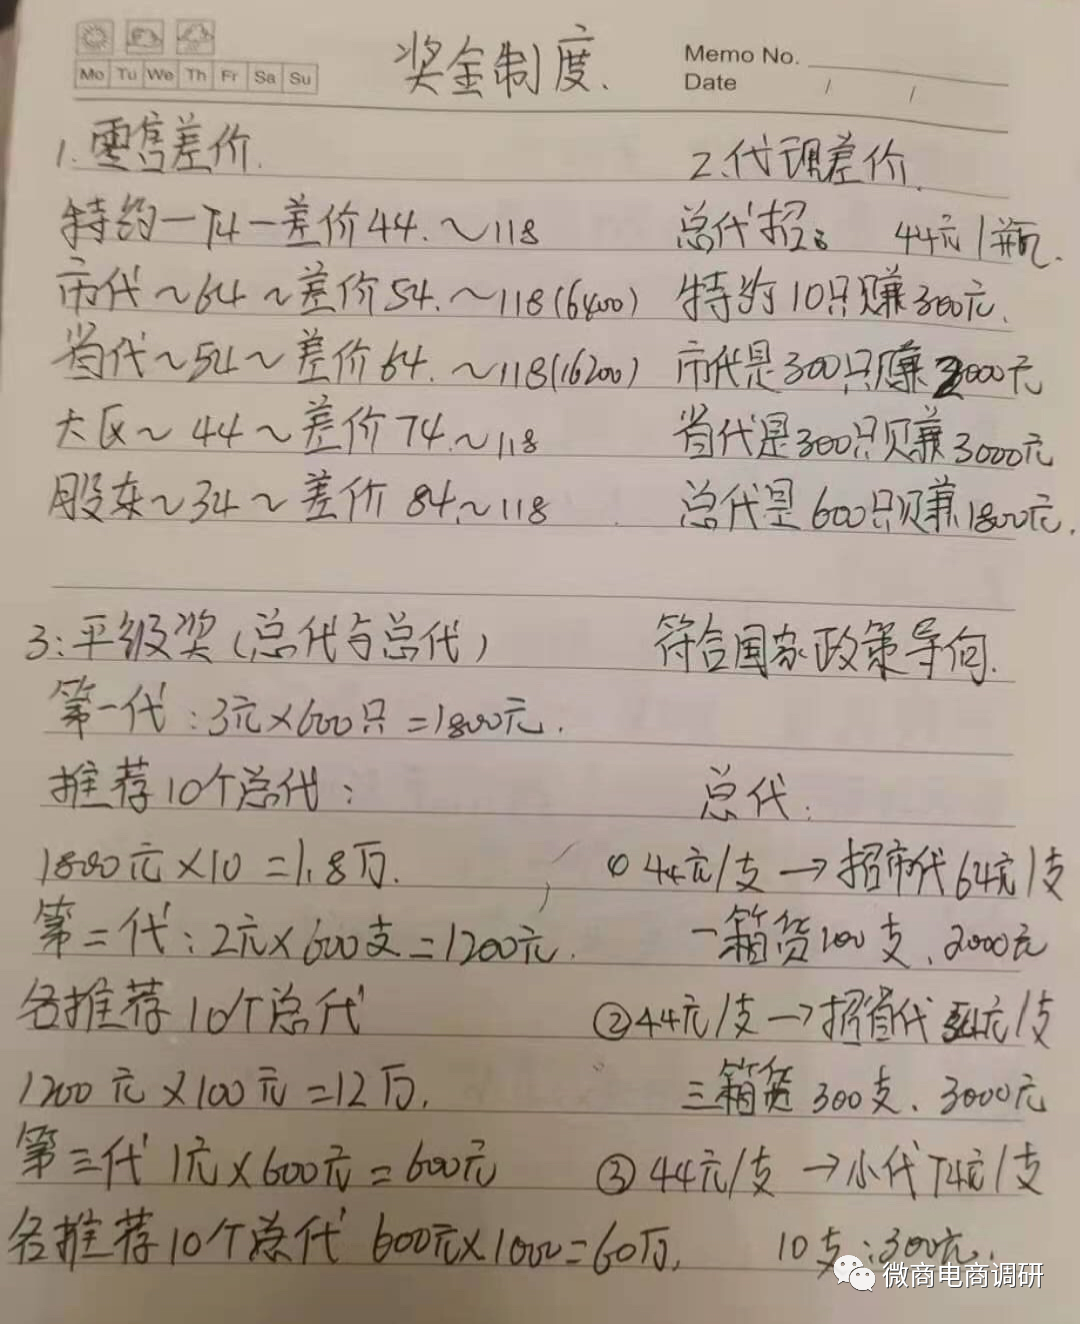 Mo Tu We Th Fr Sa Su
奖金制度.
Memo No.
Date / /
1.零售差价.
特约一74一差价44.～118
市代～64～差价54.～118(6400)
省代～54～差价64.～118(16200)
大区～44～差价74.～118
股东～34～差价84.～118
2.代理差价.
总代招: 44元/瓶.
特约10只赚300元.
市代是300只赚2000元
省代是300只赚3000元
总代是600只赚1800元.
3:平级奖(总代与总代)
第一代:3元×600只=1800元.
推荐10个总代:
1800元×10=1.8万.
第二代:2元×600支=1200元.
各推荐10个总代
1200元×100元=12万.
第三代 1元×600元=600元
各推荐10个总代 600元×1000=60万.
符合国家政策导向.
总代:
① 44元/支→招市代64元/支
一箱货100支、2000元
②44元/支→招省代54元/支
三箱货300支、3000元
③44元/支→小代74元/支
10支:300元.
微商电商调研